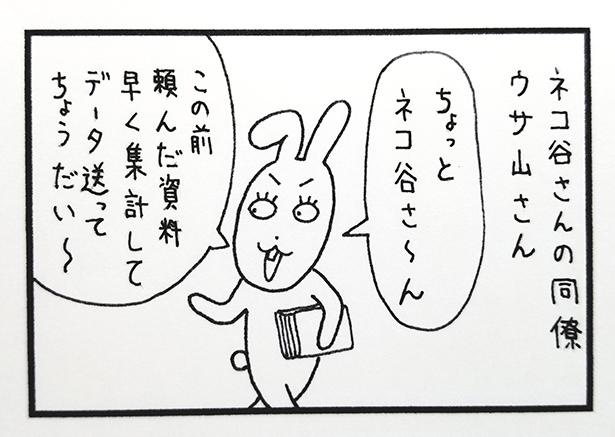 ネコ谷さんの同僚
ウサ山さん
ちょっと
ネコ谷さ〜ん
この前
頼んだ資料
早く集計して
データ送って
ちょうだい〜